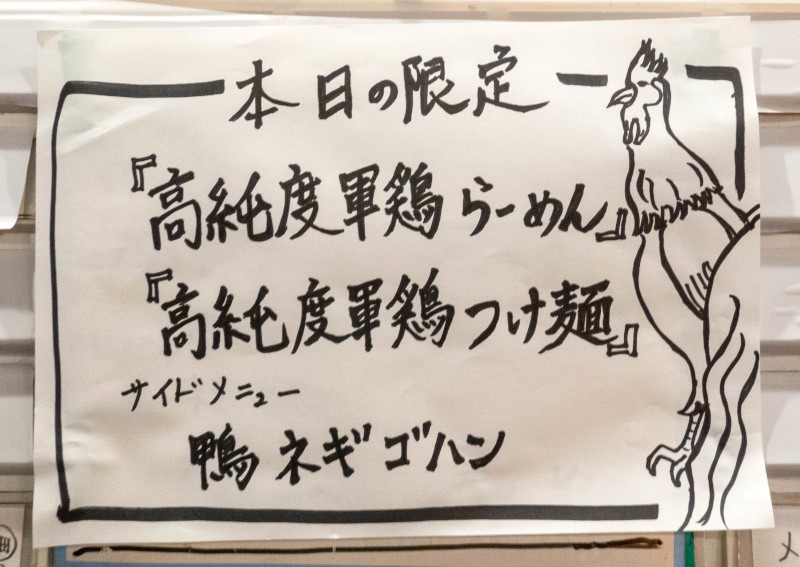 本日の限定
『高純度軍鶏らーめん』
『高純度軍鶏つけ麺』
サイドメニュー
鴨ネギゴハン
メ